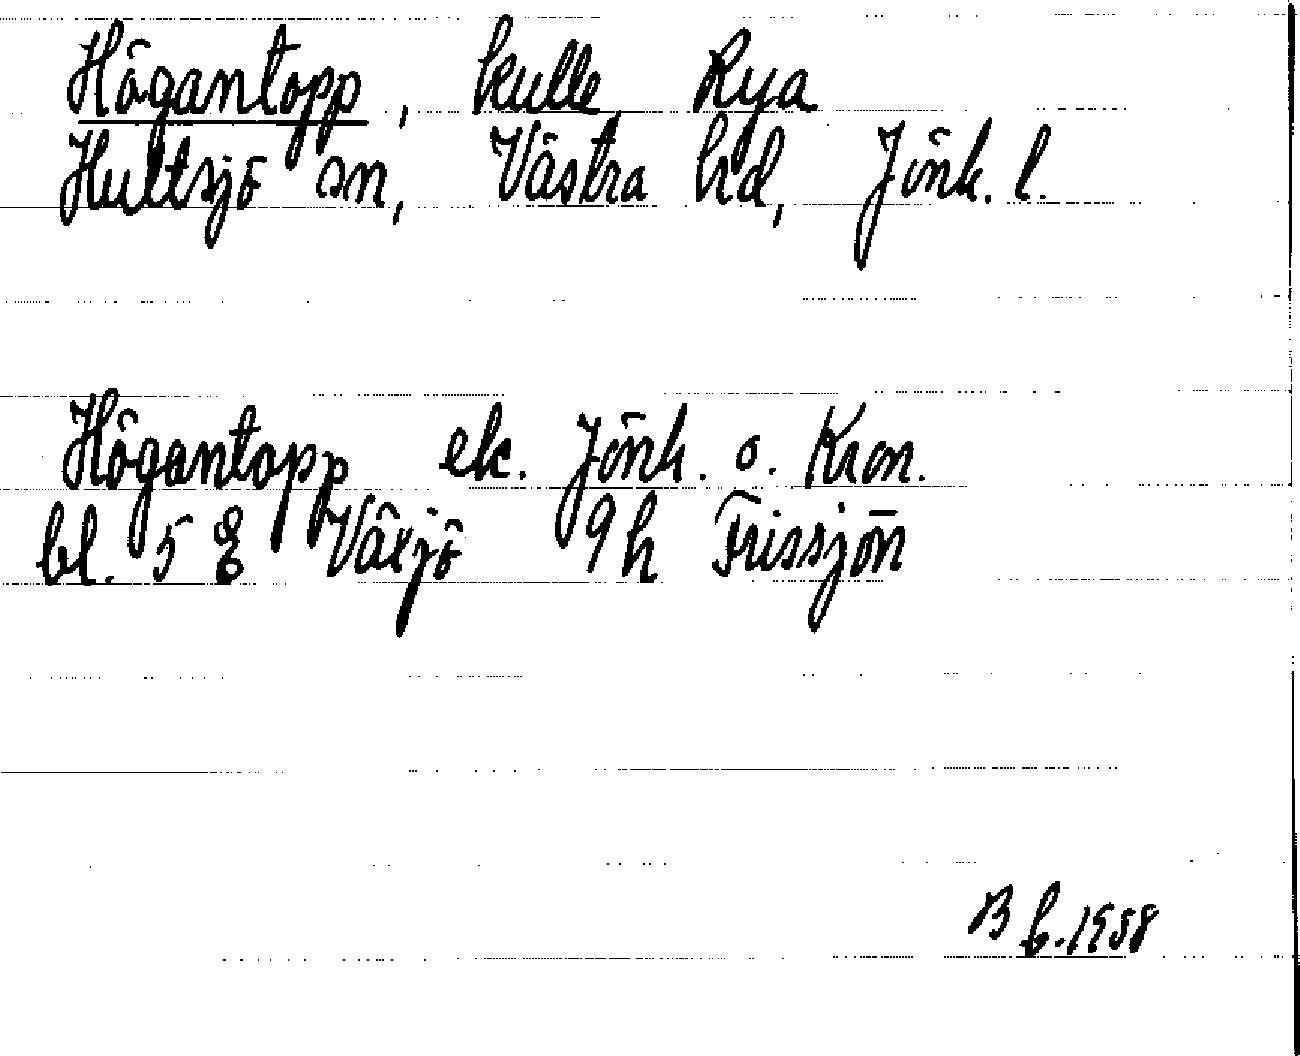 Högantopp, kulle Rya
Hultsjö sn, Västra hd, Jönk. l.
Högantopp ek. Jönk. o. Kron.
bl. 5 E Växjö 9 h Frissjön
B b. 1958